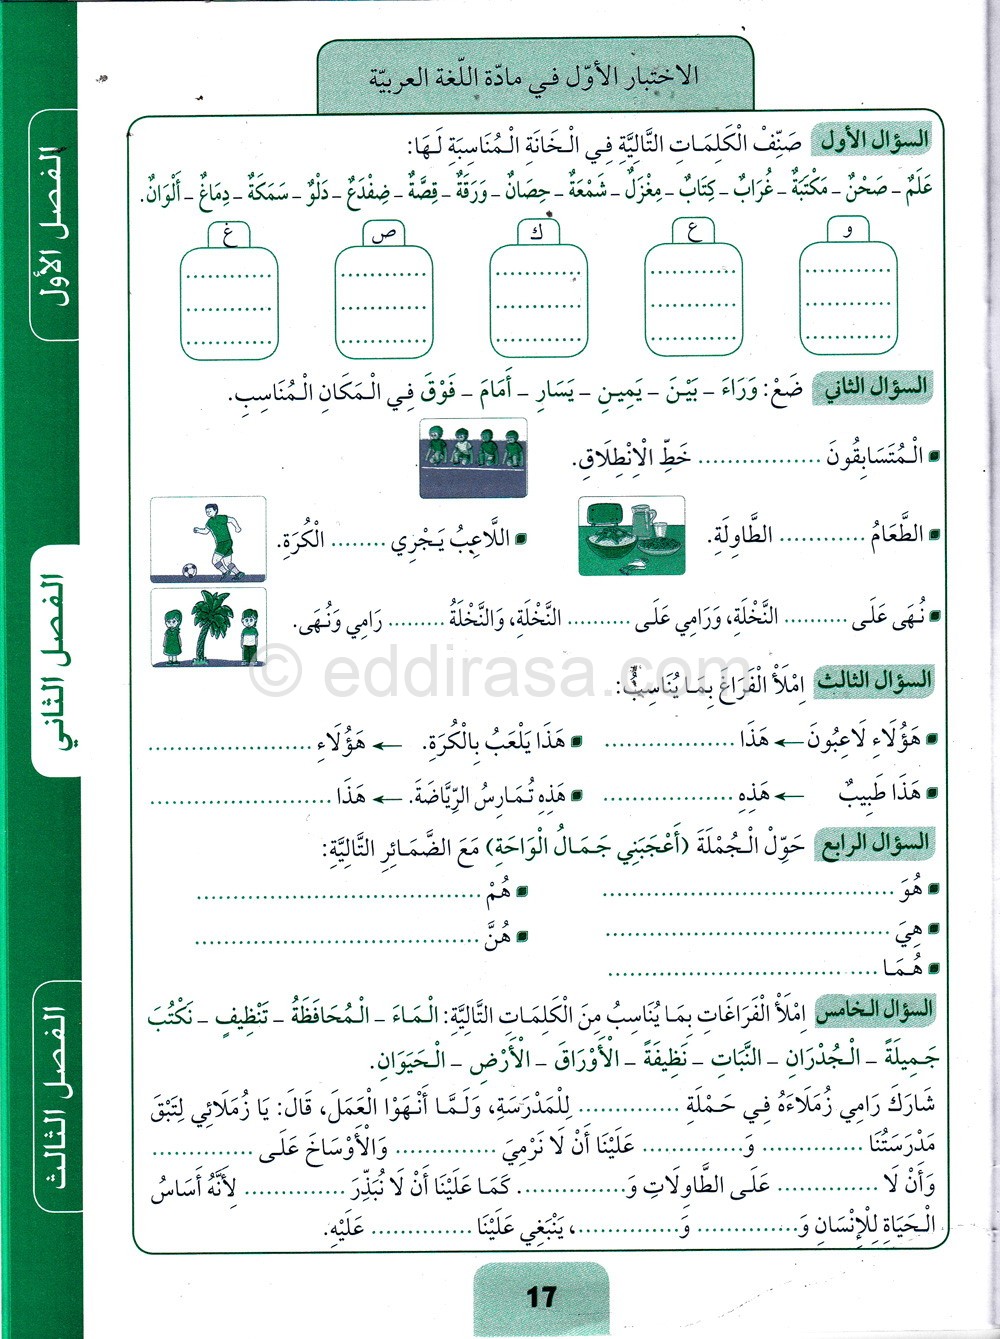 الاختبار الأوّل في مادّة اللّغة العربيّة
السؤال الأول صَنِّفْ الْكَلِمَاتِ التَّالِيَّةِ فِي الْخَانَةِ الْمُنَاسِبَةِ لَهَا:
عَلَمٌ - صَحْنٌ - مَكْتَبَةٌ - غُرَابٌ - كِتَابٌ - مِغْزَلٌ - شَمْعَةٌ - حِصَانٌ - وَرَقَةٌ - قِصَّةٌ - ضِفْدَعٌ - دَلْوٌ - سَمَكَةٌ - دِمَاغٌ - أَلْوَانٌ.
و ع ك ص غ
السؤال الثاني ضَعْ: وَرَاءَ - بَيْنَ - يَمِينِ - يَسَارِ - أَمَامَ - فَوْقَ فِي الْمَكَانِ الْمُنَاسِبِ.
الْمُتَسَابِقُونَ .................. خَطِّ الْاِنْطِلَاقِ.
الطَّعَامُ ............. الطَّاوِلَةِ.
اللَّاعِبُ يَجْرِي ........ الْكُرَةِ.
نُهَى عَلَى ............ النَّخْلَةِ، وَرَامِي عَلَى ............ النَّخْلَةِ، وَالنَّخْلَةُ ............ رَامِي وَنُهَى.
© eddirasa.com
السؤال الثالث اِمْلَأْ الْفَرَاغَ بِمَا يُنَاسِبُ:
هَؤُلَاءِ لَاعِبُونَ ← هَذَا ...................
هَذَا يَلْعَبُ بِالْكُرَةِ. ← هَؤُلَاءِ ........................
هَذَا طَبِيبٌ ← هَذِهِ ...................
هَذِهِ تُمَارِسُ الرِّيَّاضَةَ. ← هَذَا ........................
السؤال الرابع حَوِّلْ الْجُمْلَةَ (أَعْجَبَنِي جَمَالُ الْوَاحَةِ) مَعَ الضَّمَائِرِ التَّالِيَّةِ:
هُوَ ........................................
هُمْ ........................................
هِيَ ........................................
هُنَّ ........................................
هُمَا ........................................
السؤال الخامس اِمْلَأْ الْفَرَاغَاتِ بِمَا يُنَاسِبُ مِنَ الْكَلِمَاتِ التَّالِيَّةِ: الْمَاءَ - الْمُحَافَظَةُ - تَنْظِيفٍ - نَكْتُبَ
جَمِيلَةً - الْجُدْرَانِ - النَّبَاتِ - نَظِيفَةً - الْأَوْرَاقَ - الْأَرْضِ - الْحَيَوَانِ.
شَارَكَ رَامِي زُمَلَاءَهُ فِي حَمْلَةِ .............. لِلْمَدْرَسَةِ، وَلَمَّا أَنْهَوْا الْعَمَلَ، قَالَ: يَا زُمَلَائِي لِتَبْقَ
مَدْرَسَتُنَا ............... وَ............... عَلَيْنَا أَنْ لَا نَرْمِيَ ............... وَالْأَوْسَاخَ عَلَى ...............
وَأَنْ لَا ............... عَلَى الطَّاوِلَاتِ وَ................ كَمَا عَلَيْنَا أَنْ لَا نُبَذِّرَ ............... لِأَنَّهُ أَسَاسُ
الْحَيَاةِ لِلْإِنْسَانِ وَ............... وَ...............، يَنْبَغِي عَلَيْنَا ............... عَلَيْهِ.
17
الفصل الأول
الفصل الثاني
الفصل الثالث